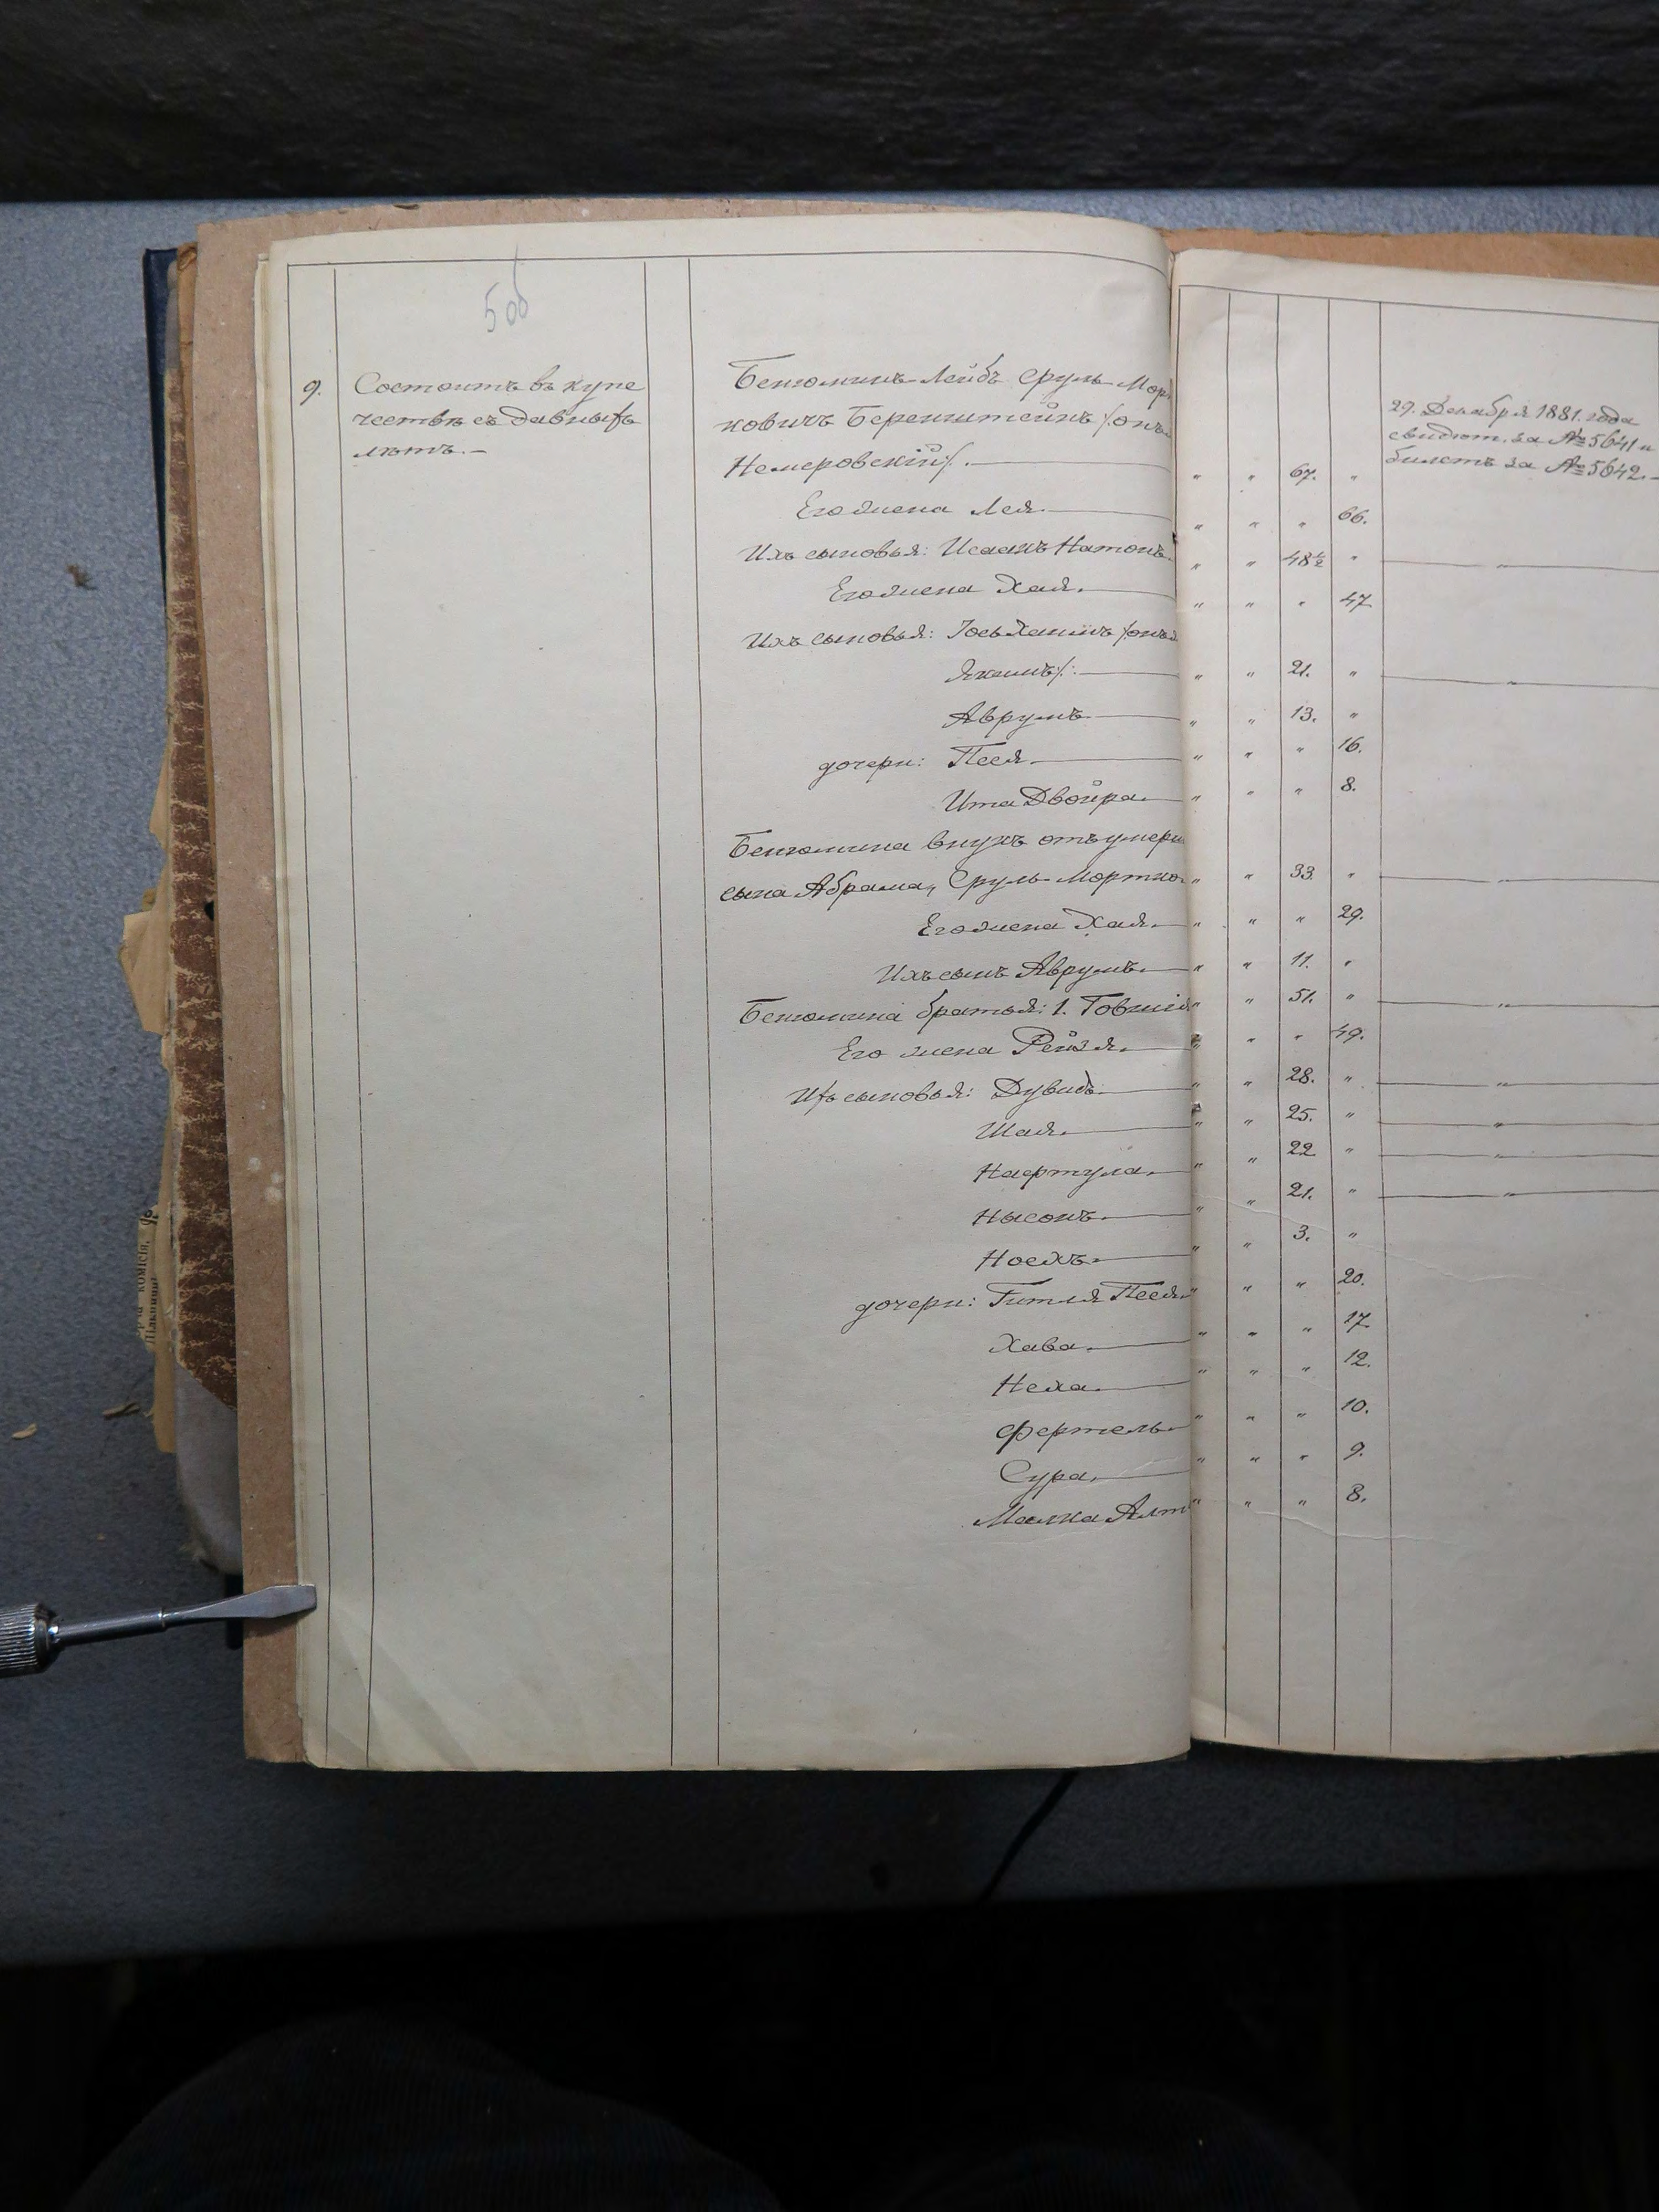 5об
9.
Состоитъ въ купе
чествѣ съ давныхъ
лѣтъ. -
Бенюминъ Лейбъ Сруль Морд
ковичъ Беренштейнъ /:онъ
Немеровскій:/. " " 67. "
29. Декабря 1881. года
свидѣт. за № 5641 и
билетъ за № 5642. -
Его жена Лея. " " " 66.
Ихъ сыновья: Исаакъ Натонъ. " " 48½ " "
Его жена Хая. " " " 47.
Ихъ сыновья: Іось Хаимъ /:онъ
Якимъ:/. " " 21. " "
Аврумъ " " 13. "
дочери: Песя. " " " 16.
Ита Двойра. " " " 8.
Бенюмина внукъ отъ умерш
сына Абрама, Сруль Мортко " " 33. " "
Его жена Хая. " " " 29.
Ихъ сынъ Аврумъ. " " 11. "
Бенюмина братья: 1. Говшія " " 51. " "
Его жена Рейзя. " " " 49.
Ихъ сыновья: Дувидъ. " " 28. " "
Шая. " " 25. " "
Нафтула. " " 22 " "
Нысонъ. " " 21. " "
Ноехъ. " " 3. "
дочери: Гитля Песя. " " " 20.
Хава. " " " 17.
Неха. " " " 12.
Фертель. " " " 10.
Сура. " " " 9.
Малка Алт " " " 8.